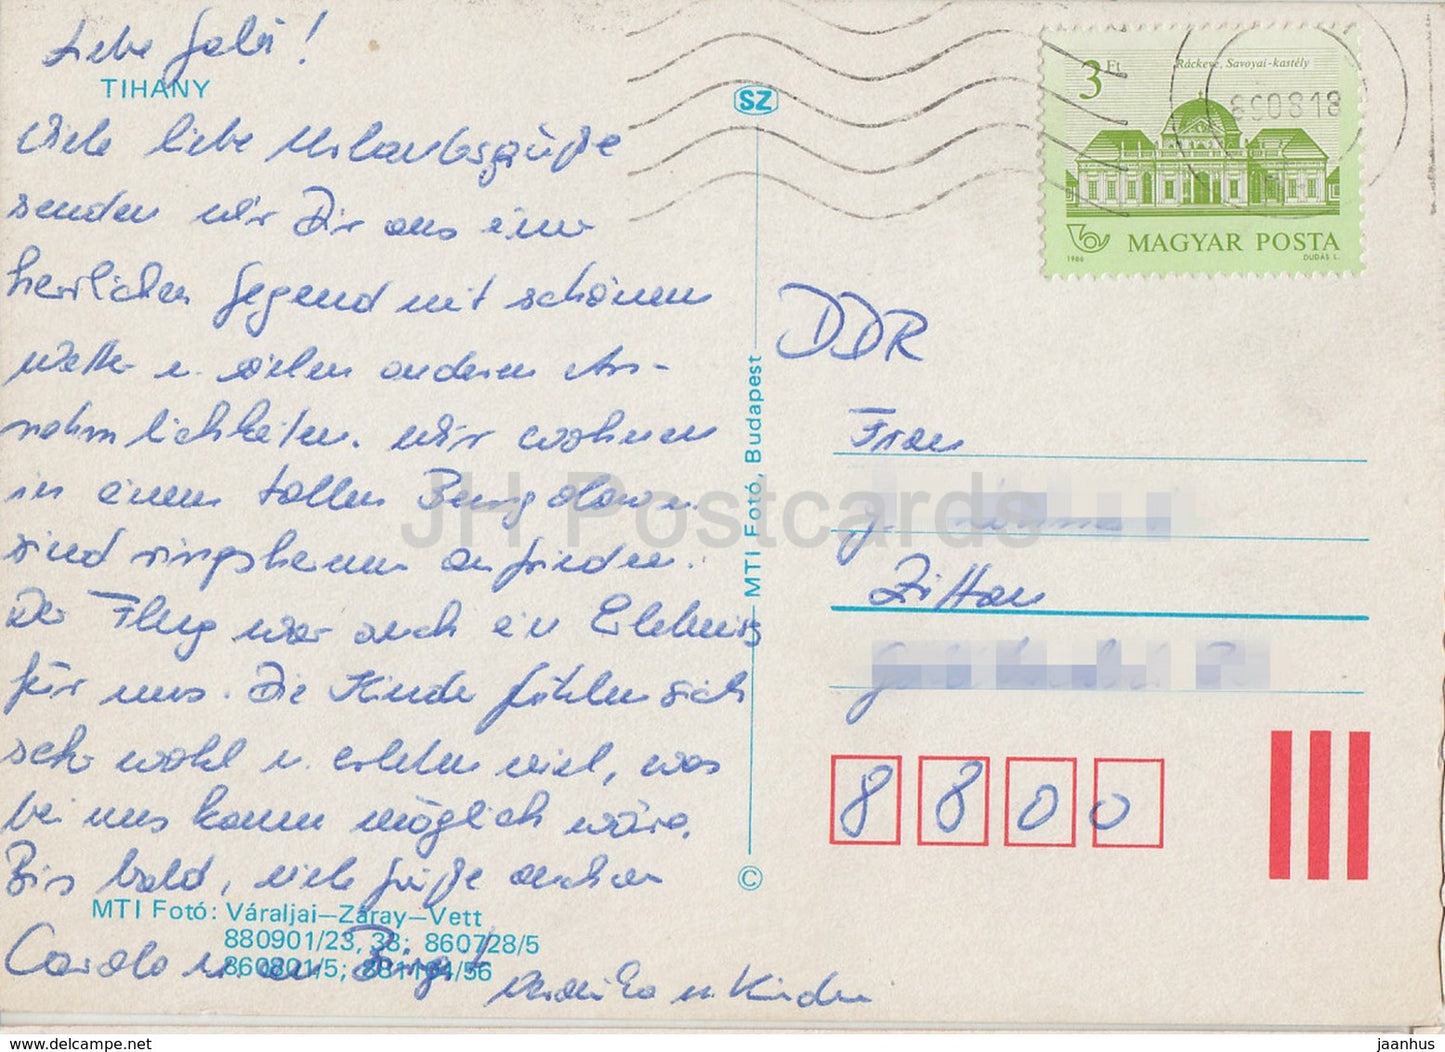 Liebe Gabi!
TIHANY
Viele liebe Urlaubsgrüße
senden wir Dir aus einer
herrlichen Gegend mit schönem
Wetter u. vielen anderen An-
nehmlichkeiten. Wir wohnen
in einem tollen Bungalow u.
sind ringsherum zufrieden.
Der Flug war auch ein Erlebnis
für uns. Die Kinder fühlen sich
sehr wohl u. erleben viel, was
bei uns kaum möglich wäre.
Bis bald, viele Grüße auch an
MTI Fotó: Váraljai—Záray—Vett
880901/23, 38; 860728/5
860801/5; 881104/56
Carola u. an Birgit
u. Kinder
SZ
MTI Fotó, Budapest
©
3 Ft
Ráckeve, Savoyai-kastély
890818
MAGYAR POSTA
1986
DUDÁS L.
DDR
Frau
Zittau
8800
JH Postcards
www.delcampe.net
jaanhus